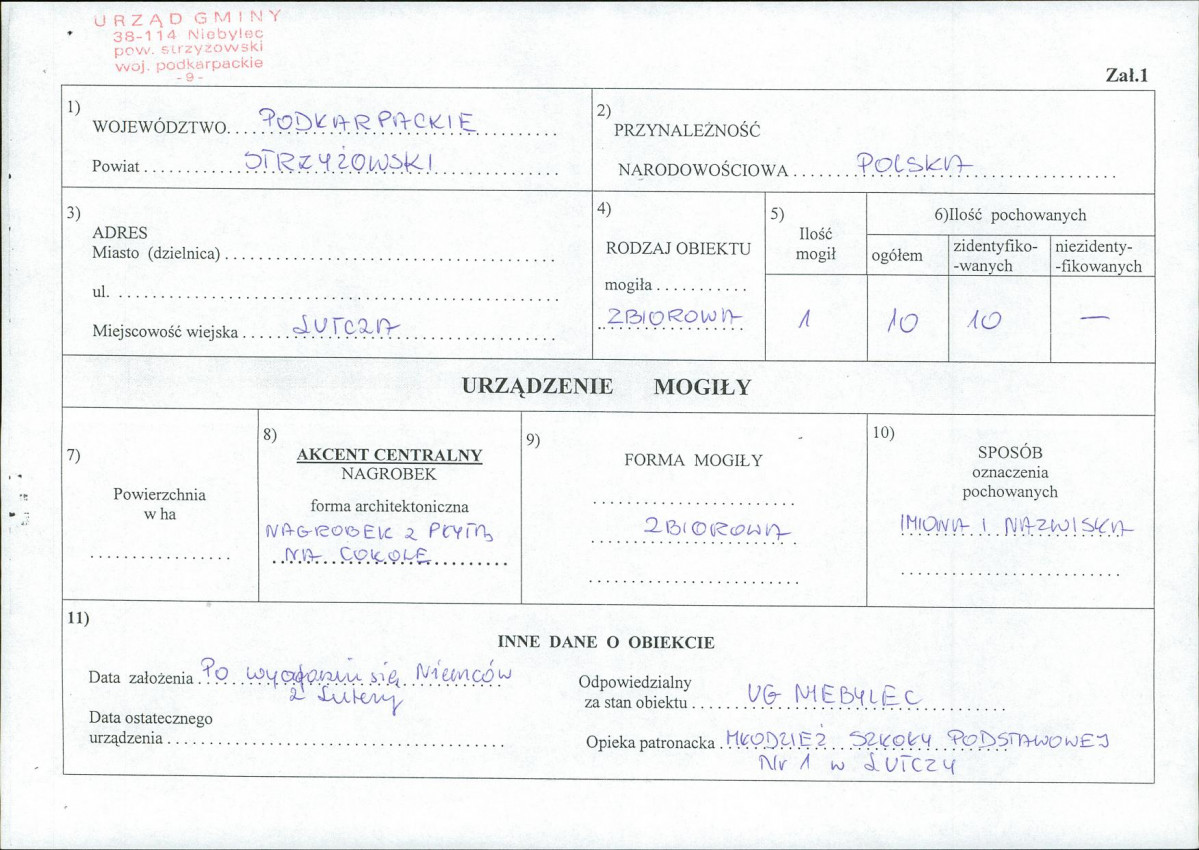 URZĄD GMINY
38-114 Niebylec
pow. strzyżowski
woj. podkarpackie
-9-
Zał.1
1)
WOJEWÓDZTWO.... PODKARPACKIE
Powiat ............ STRZYŻOWSKI
2)
PRZYNALEŻNOŚĆ
NARODOWOŚCIOWA ......... POLSKA
3)
ADRES
Miasto (dzielnica) ..............................
ul. ..............................
Miejscowość wiejska ....... LUTCZA
4)
RODZAJ OBIEKTU
mogiła ...........
ZBIOROWA
5)
Ilość
mogił
1
6)Ilość pochowanych
ogółem
zidentyfiko-
-wanych
niezidenty-
-fikowanych
10
10
—
URZĄDZENIE MOGIŁY
7)
Powierzchnia
w ha
..................
8)
AKCENT CENTRALNY
NAGROBEK
forma architektoniczna
NAGROBEK Z PŁYTĄ
NA COKOLE
9)
FORMA MOGIŁY
..........................
ZBIOROWA
..........................
10)
SPOSÓB
oznaczenia
pochowanych
IMIONA I NAZWISKA
..........................
11)
INNE DANE O OBIEKCIE
Data założenia Po się Niemców
z Lutczy
Data ostatecznego
urządzenia ..............................
Odpowiedzialny
za stan obiektu ....... UG NIEBYLEC
Opieka patronacka MŁODZIEŻ SZKOŁY PODSTAWOWEJ
Nr 1 w LUTCZY